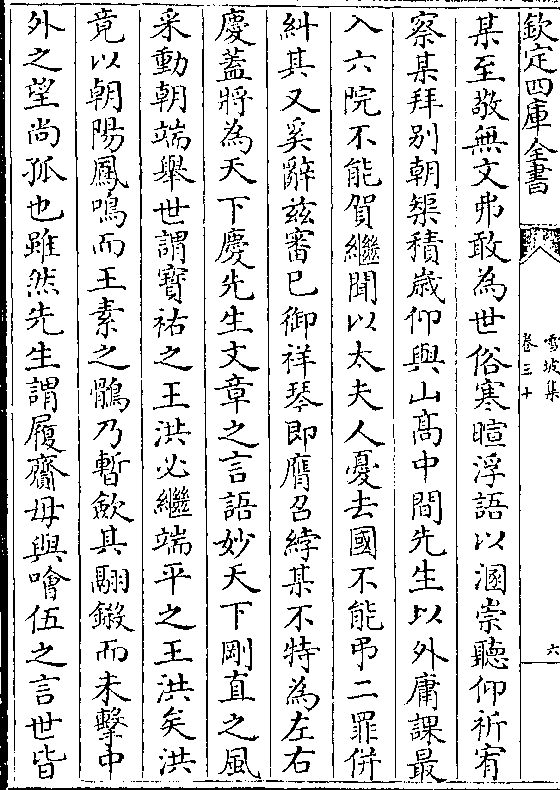 欽定四庫全書
雪坡集
卷三十
六
某至敬無文弗敢為世俗寒暄浮語以溷崇聽仰祈宥
察某拜别朝榘積歲仰與山髙中間先生以外庸課最
入六院不能賀繼聞以太夫人憂去國不能弔二罪併
糾其又奚辭兹審已御祥琴即膺召綍某不特為左右
慶蓋將為天下慶先生文章之言語妙天下剛直之風
采動朝端舉世謂寳祐之王洪必繼端平之王洪矣洪
竟以朝陽鳳鳴而王素之鶻乃暫斂其翮鎩而未擊中
外之望尚孤也雖然先生謂履齋毋與噲伍之言世皆